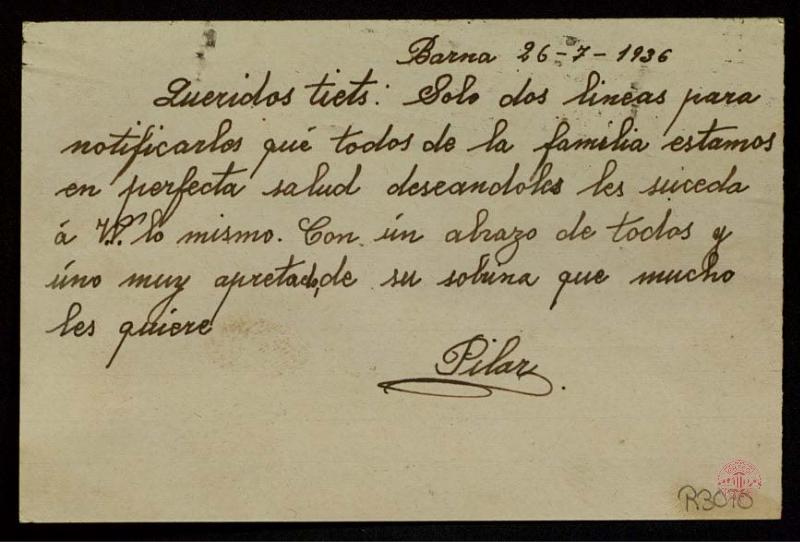 Barna 26-7-1936
Queridos tiets: Solo dos lineas para
notificarles qué todos de la familia estamos
en perfecta salud deseandoles les suceda
á V.V. lo mismo. Con ún abrazo de todos y
úno muy apretado, de su sobrina que mucho
les quiere
Pilar.
R3010